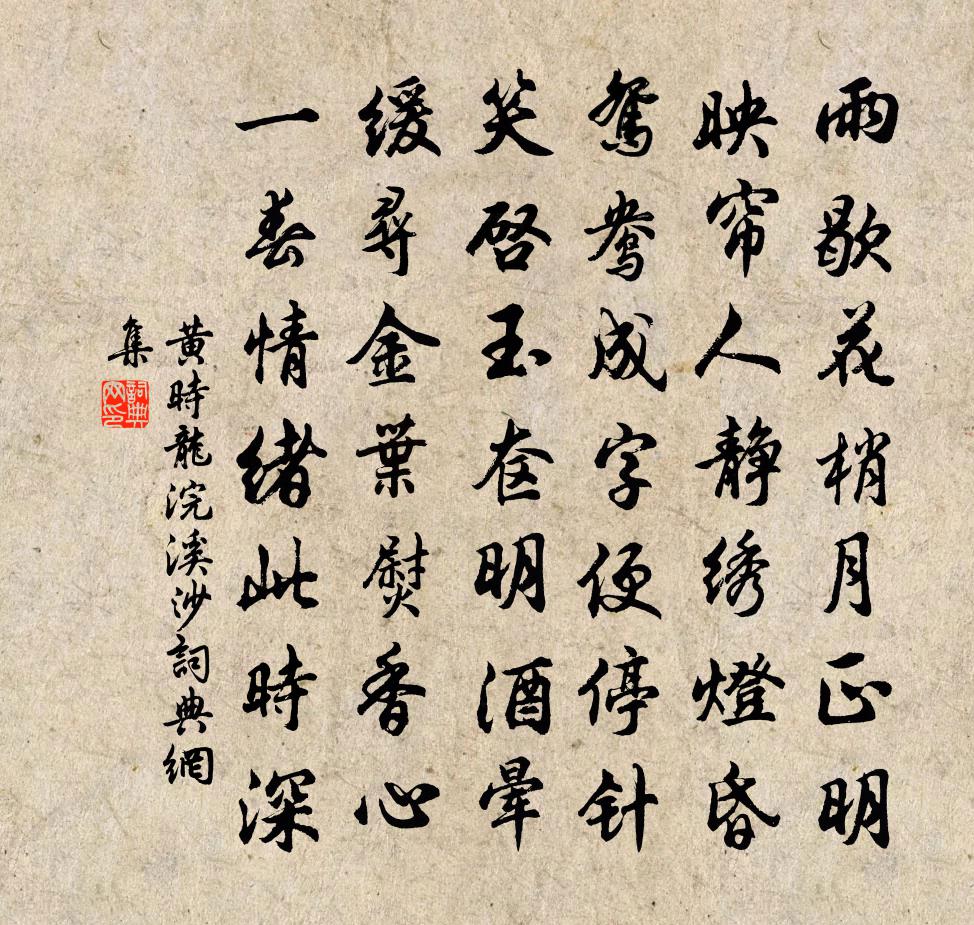 雨歇花梢月正明
映帘人静绣燈昏
鴛鴦成字便停针
笑啓玉奁明酒暈
缓尋金葉熨香心
一春情緒此時深
黄時龍浣溪沙詞典網
集
詞典
网印